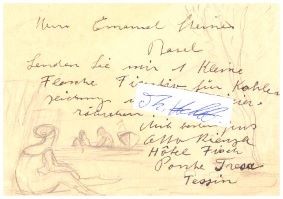 Herrn Emanuel Steiner
Basel
Senden Sie mir 1 Kleine
Flasche Fixativ für Kohle
zeichnung
röhrchen
Mit besten Gruss
Otto
Hôtel Fisch
Ponte Tresa
Tessin